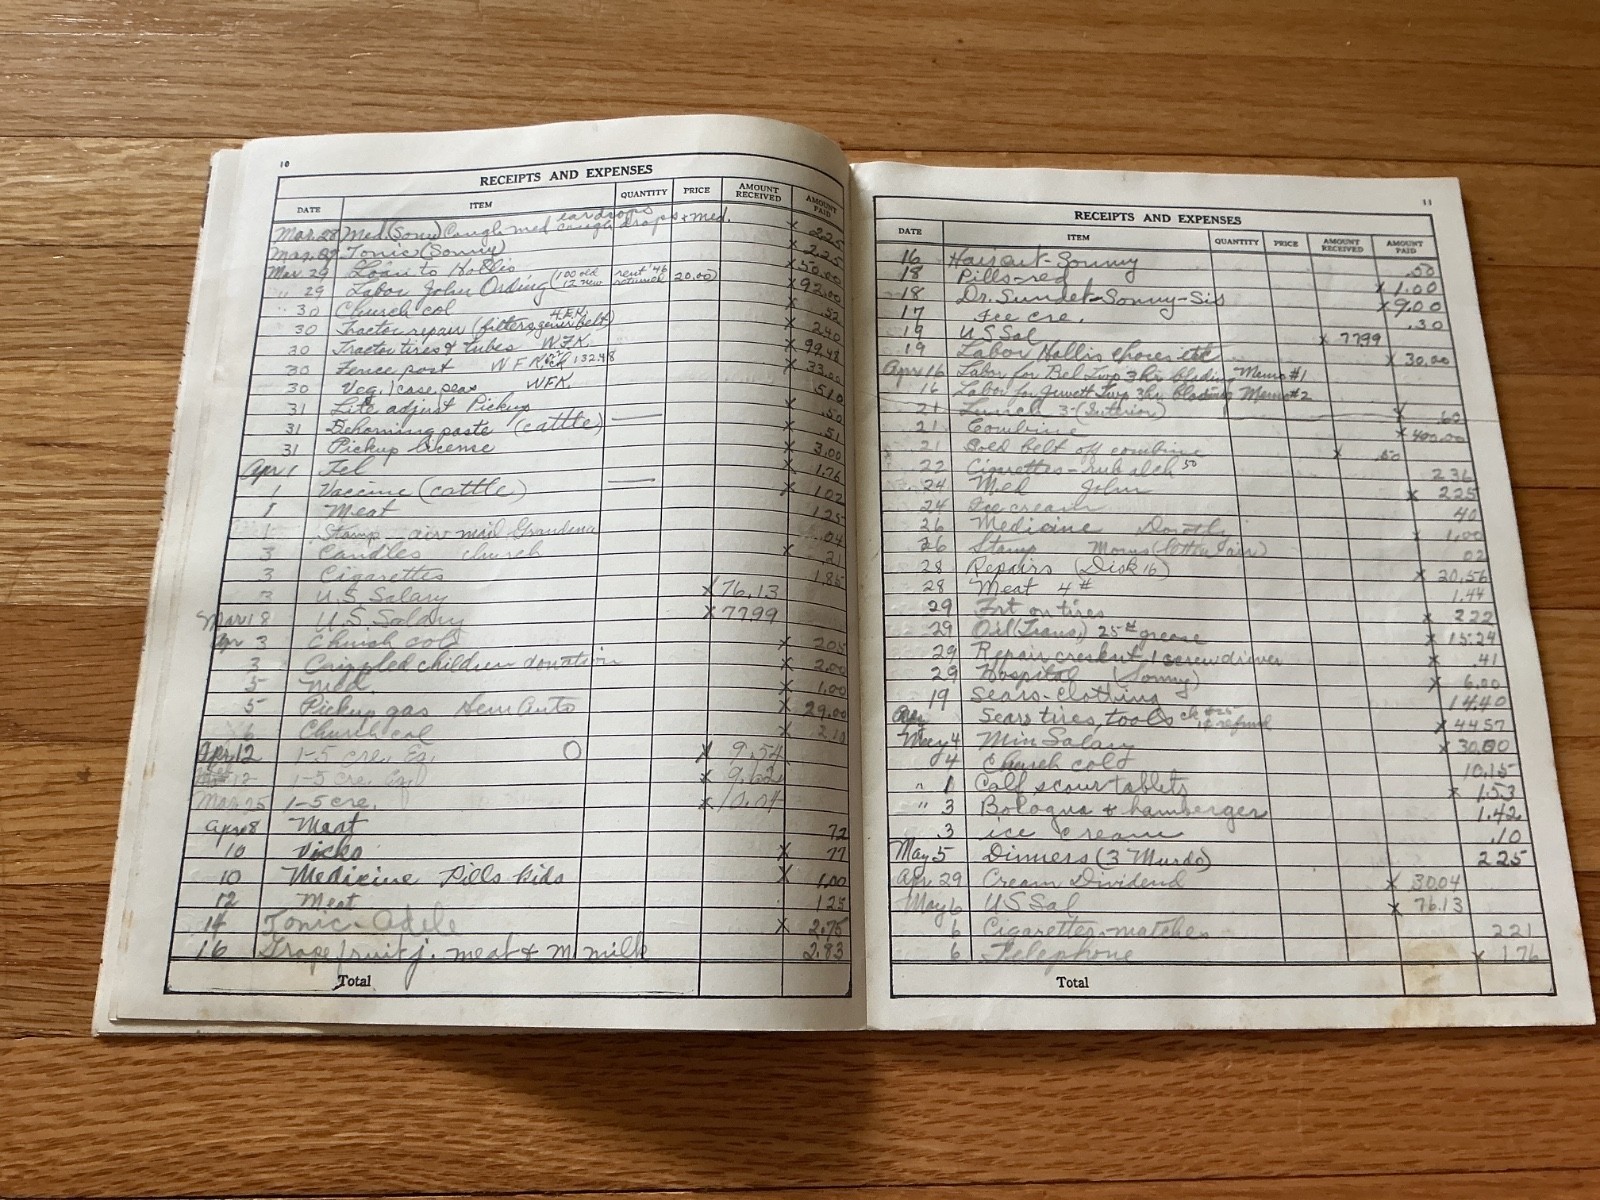 10
RECEIPTS AND EXPENSES
DATE ITEM QUANTITY PRICE AMOUNT RECEIVED AMOUNT PAID
Mar. 28 Med. (Sonny) Cough med eardrops cough drops + med. x 2.25
Mar. 29 Tonic (Sonny) x 2.25
Mar 29 Loan to Hollis x 50.00
" 29 Labor John Ording (100 old 12 new rent '46 returned 20.00) x 92.00
" 30 Church col x .52
30 Tractor repair (filters gener belt) x 2.40
30 Tractor tires & tubes W.F.K. x 99.48
30 Fence post W F K 132.48 x 33.00
30 Veg. 1 case peas WFK 5.10
31 Lite adjust Pickup x .50
31 Dehorning paste (cattle) x .51
31 Pickup license x 3.00
Apr 1 Tel x 1.76
1 Vaccine (cattle) x 1.02
1 Meat 1.25
1 Stamp air mail Grandma .04
3 Candles church x .21
3 Cigarettes 1.85
3 U.S. Salary x 76.13
Mar 18 U.S. Salary x 77.99
Apr 3 Church col x 2.05
3 Crippled children donation x 2.00
5 Med. x 1.00
5 Pickup gas Sem Auto x 29.00
6 Church col x 2.10
Apr 12 1-5 cre. Eq. O x 9.54
12 1-5 cre. Eq. x
Mar 25 1-5 cre. x
Apr 8 Meat 72
10 Vicks x 77
10 Medicine Pills kids x 1.00
12 Meat 1.25
14 Tonic - Adele x 2.75
16 Grapefruit j. meat & M. milk 2.83
Total
11
RECEIPTS AND EXPENSES
DATE ITEM QUANTITY PRICE AMOUNT RECEIVED AMOUNT PAID
16 Haircut - Sonny .50
18 Pills - reg x 1.00
18 Dr. Sundet - Sonny - Sis x 9.00
17 Ice cre. .30
19 US Sal x 77.99
19 Labor Hollis chores etc x 30.00
Apr 16 Labor for Bel Twp 3 hr blading Memo #1
16 Labor for Jewett Twp 3 hr blading Memo #2
21 Lunch 3 - (Interior) x .60
21 Combine x 400.00
21 Sold belt off combine x .50
22 Cigarettes - rub alch 50 2.36
24 Med John x 2.25
24 Ice cream 40
26 Medicine x 1.00
26 Stamp Moms (letter air) 02
28 Repairs (Disk 16) x 20.56
28 Meat 4# 1.44
29 Frt on tires x 2.22
29 Oil (Trans.) 25# grease x 15.24
29 Repair 1 screwdriver x .41
29 Hospital (Sonny) x 6.00
19 Sears - clothing 14.40
Apr Sears tires, tools refund x 44.57
May 4 Min Salary x 30.00
" 4 Church col 10.15
" 1 Calf scour tablets x 1.53
" 3 Bologna & hamberger 1.42
3 ice cream .10
May 5 Dinners (3 Murdo) 2.25
Apr 29 Cream Dividend x 30.04
May 6 US Sal x 76.13
6 Cigarettes - matches 2.21
6 Telephone x 1.76
Total